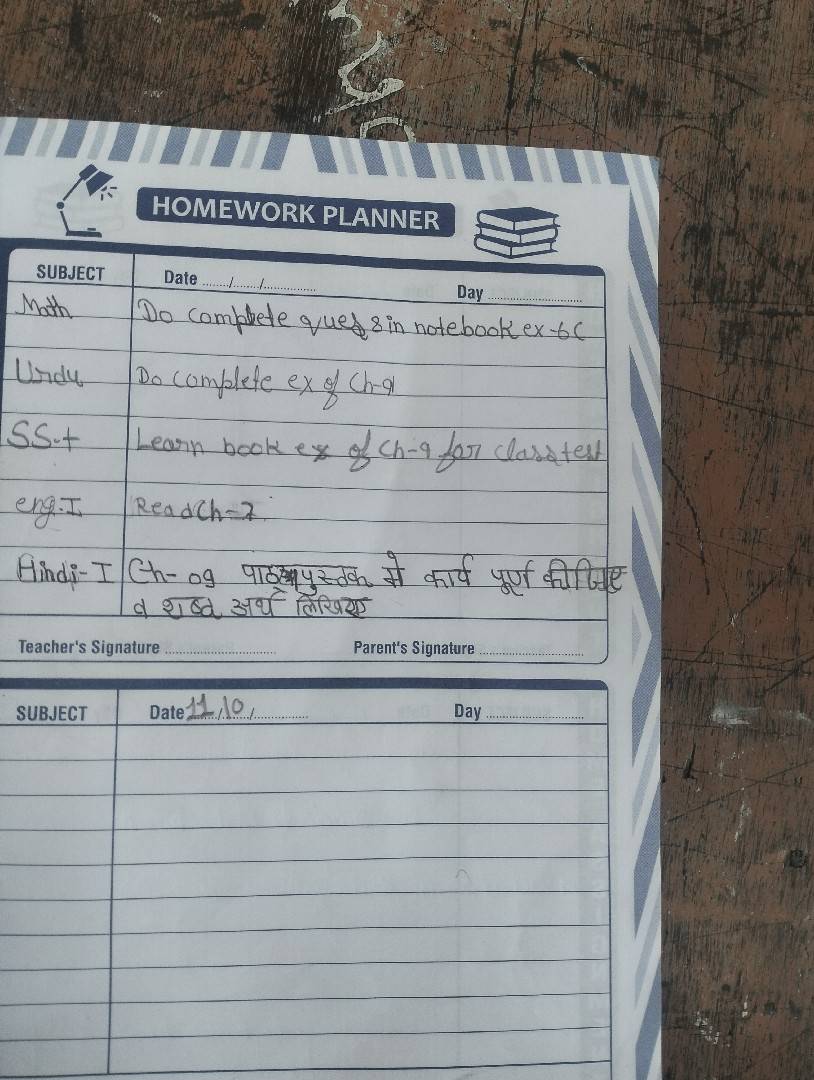 HOMEWORK PLANNER
SUBJECT Date ....../....../............... Day ...........................
Math Do complete ques 8 in notebook ex-6C
Urdu Do complete ex of Ch-9
SS.t Learn book ex of Ch-9 for class test
eng.I Read Ch-2
Hindi-I Ch-09 पाठ्यपुस्तक में कार्य पूर्ण कीजिए
व शब्द अर्थ लिखिए
Teacher's Signature ........................... Parent's Signature ...........................
SUBJECT Date 11/10/............... Day ...........................